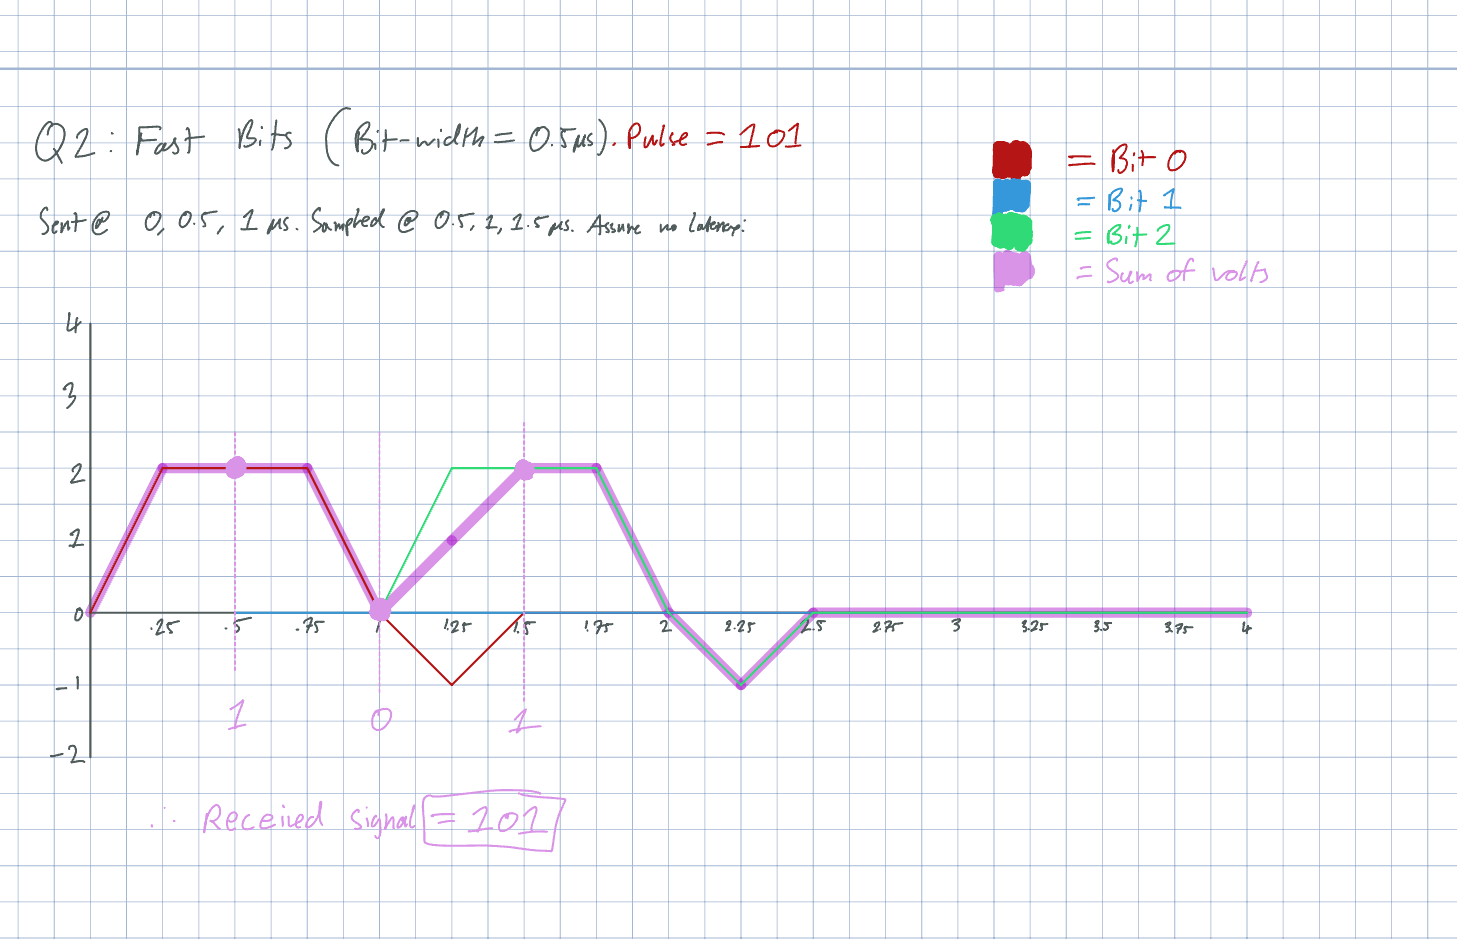 Q2: Fast Bits (Bit-width = 0.5µs). Pulse = 101
Sent @ 0, 0.5, 1 µs. Sampled @ 0.5, 1, 1.5µs. Assure no latency:
= Bit 0
= Bit 1
= Bit 2
= Sum of volts
4
3
2
2
0
.25 .5 .75 1 1.25 1.5 1.75 2 2.25 2.5 2.75 3 3.25 3.5 3.75 4
-1
-2
1 0 1
∴ Received signal = 101